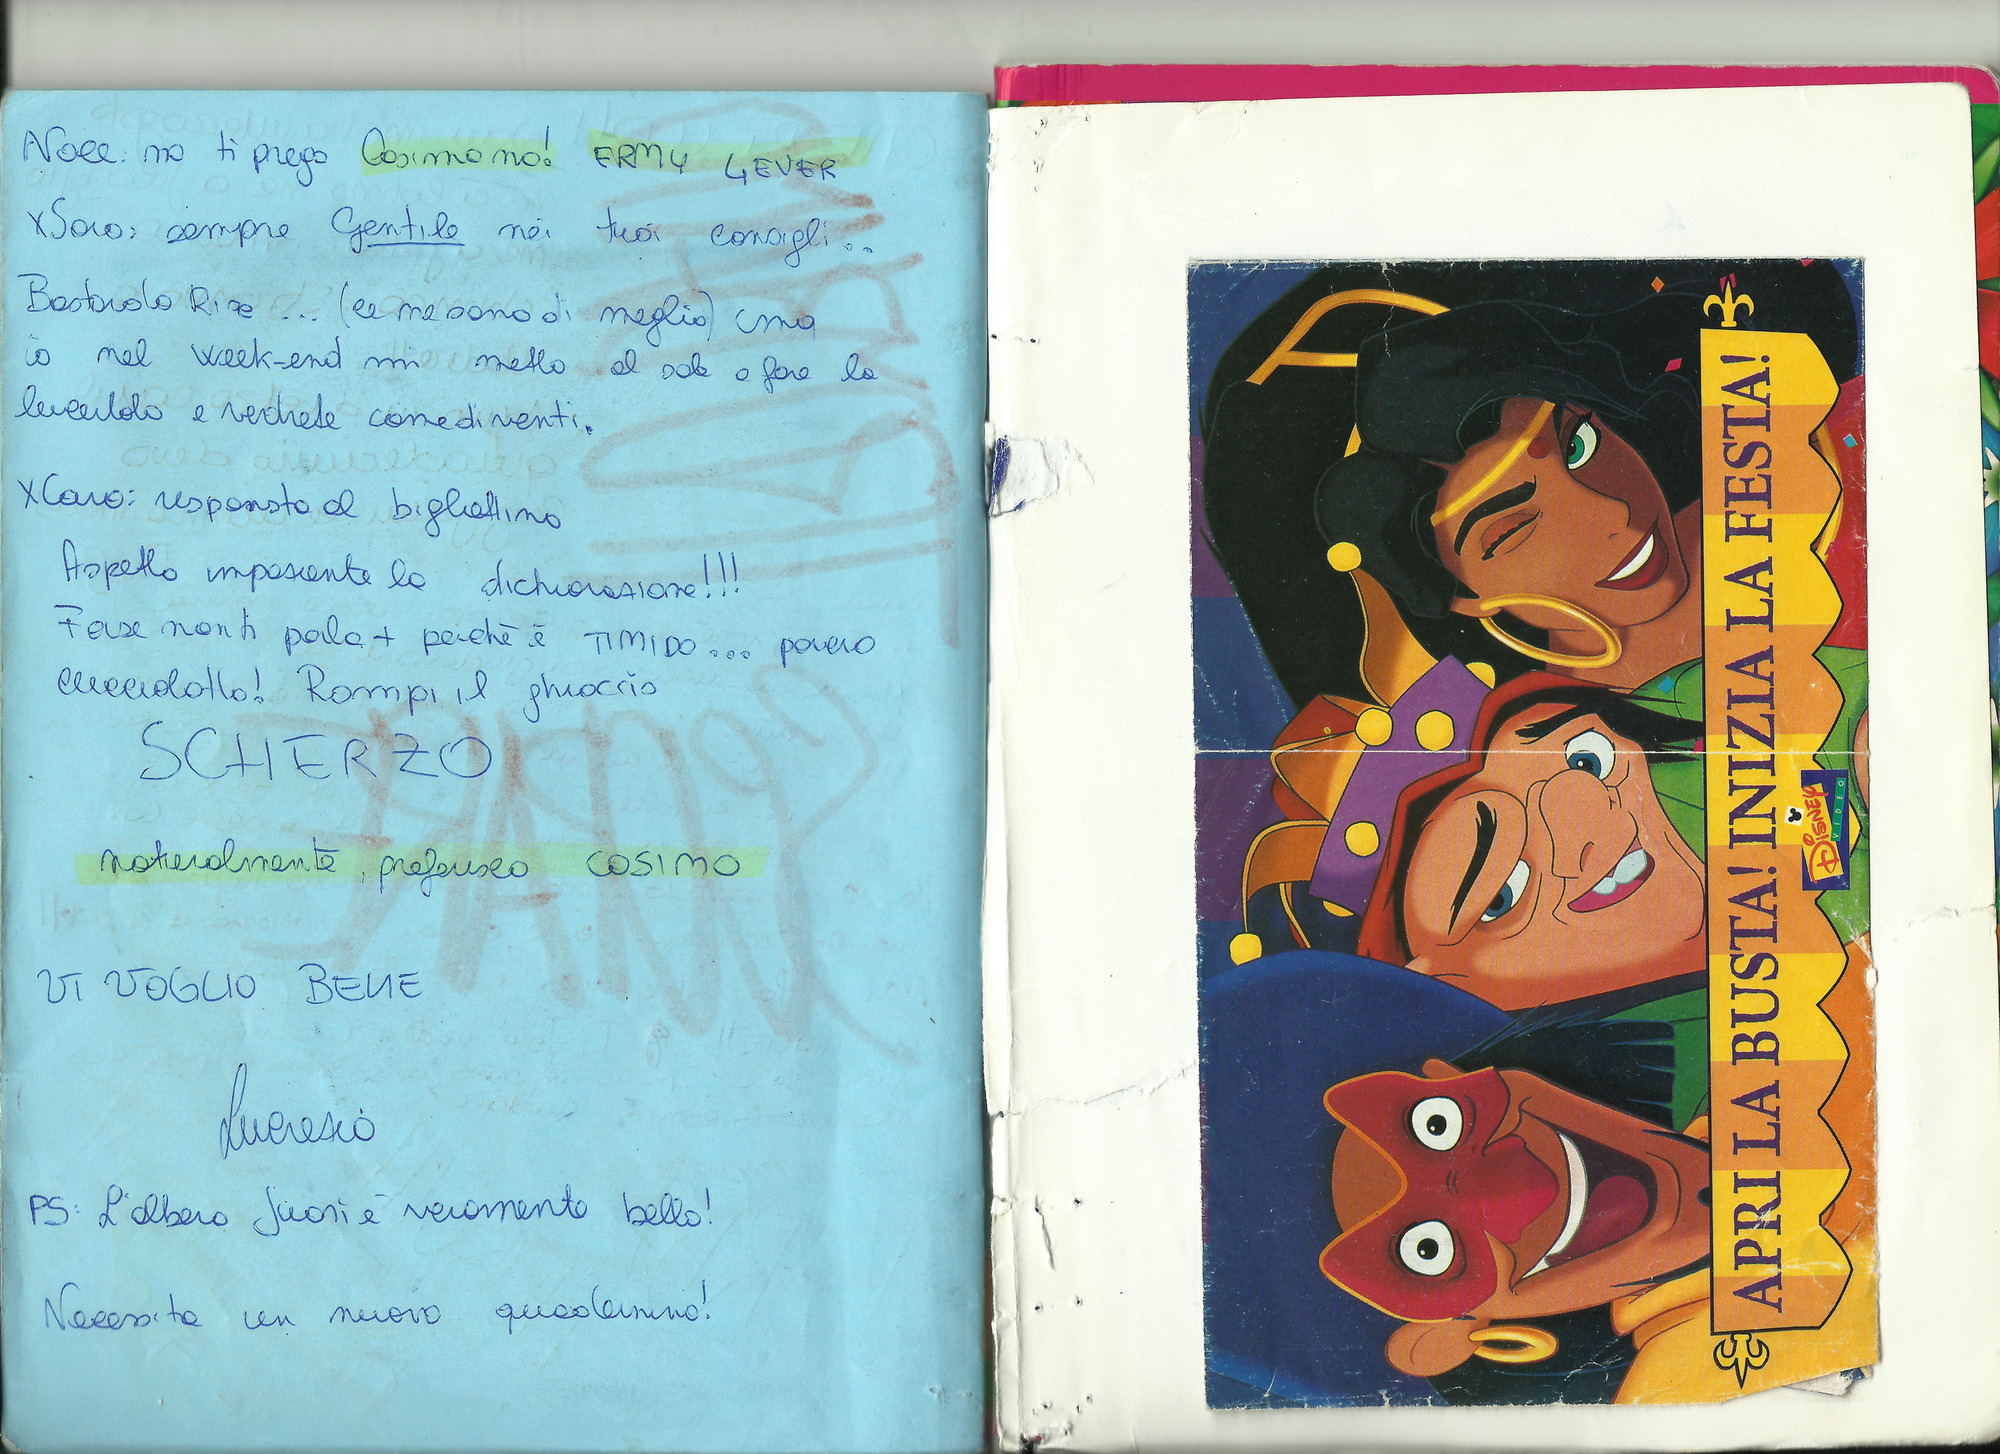 Noee: no ti prego Cosimo no! ERMY 4EVER
xSara: sempre Gentile nei tuoi consigli...
Bastarda Rise ... (ce ne sono di meglio) ma
io nel week-end mi metto al sole a fare la
lucertola e vedrete come diventi.
xCaro: risposta al bigliettino
Aspetto impaziente la dichiarazione!!!
Forse non ti parla + perchè è TIMIDO... povero
cucciolotto! Rompi il ghiaccio
SCHERZO
naturalmente, preferisco COSIMO
VI VOGLIO BENE
Lucrezia
PS: L'albero fuori è veramente bello!
Necessita un nuovo quadernino!
APRI LA BUSTA! INIZIA LA FESTA!
DISNEY
VIDEO